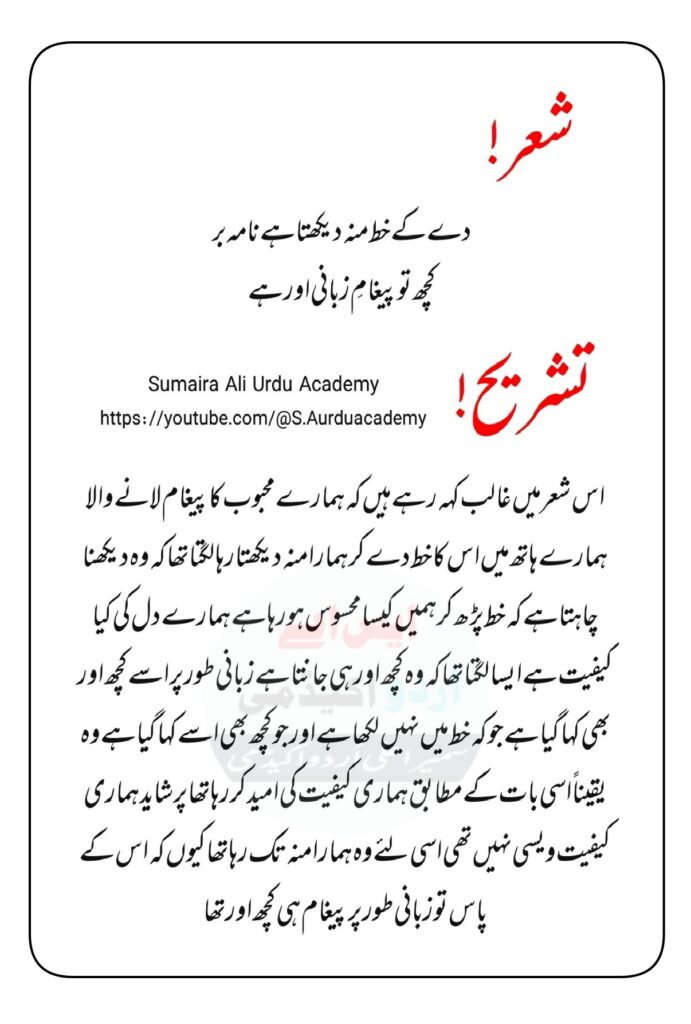 شعر!
دے کے خط منہ دیکھتا ہے نامہ بر
کچھ تو پیغامِ زبانی اور ہے
تشریح!
Sumaira Ali Urdu Academy
https://youtube.com/@S.Aurduacademy
اس شعر میں غالب کہہ رہے ہیں کہ ہمارے محبوب کا پیغام لانے والا
ہمارے ہاتھ میں اس کا خط دے کر ہمارا منہ دیکھتا رہا لگتا تھا کہ وہ دیکھنا
چاہتا ہے کہ خط پڑھ کر ہمیں کیسا محسوس ہو رہا ہے ہمارے دل کی کیا
کیفیت ہے ایسا لگتا تھا کہ وہ کچھ اور ہی جانتا ہے زبانی طور پر اسے کچھ اور
بھی کہا گیا ہے جو کہ خط میں نہیں لکھا ہے اور جو کچھ بھی اسے کہا گیا ہے وہ
یقیناً اسی بات کے مطابق ہماری کیفیت کی امید کر رہا تھا پر شاید ہماری
کیفیت ویسی نہیں تھی اسی لئے وہ ہمارا منہ تک رہا تھا کیوں کہ اس کے
پاس تو زبانی طور پر پیغام ہی کچھ اور تھا
ایس اے
اردو اکیڈمی
سمیرا علی اردو اکیڈمی